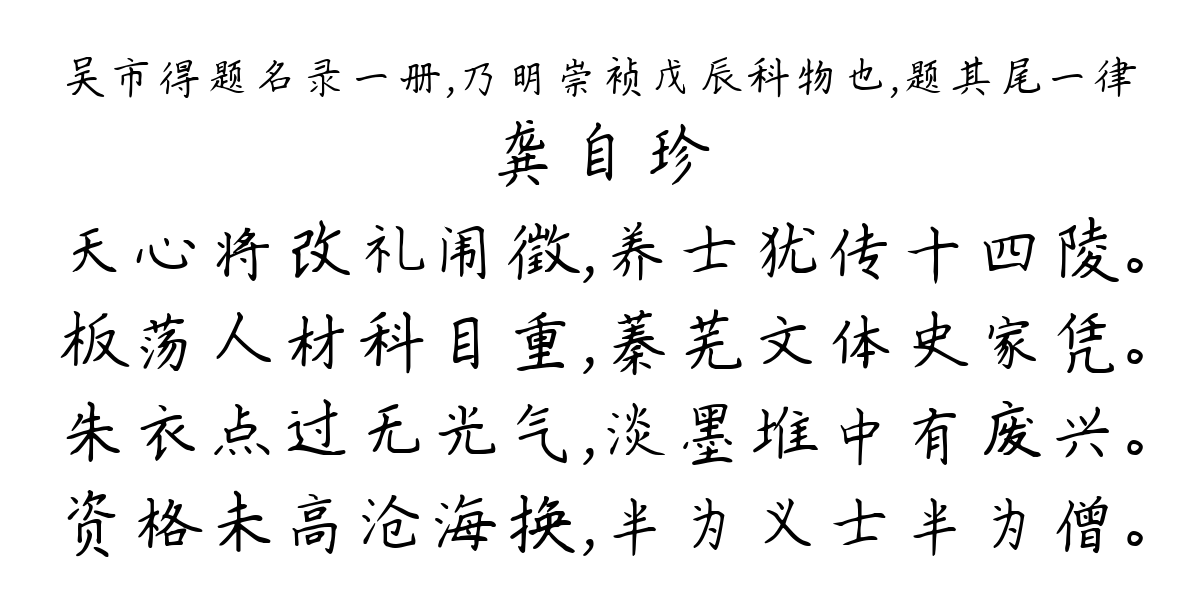 吴市得题名录一册,乃明崇祯戊辰科物也,题其尾一律
龚自珍
天心将改礼闱徵,养士犹传十四陵。
板荡人材科目重,蓁芜文体史家凭。
朱衣点过无光气,淡墨堆中有废兴。
资格未高沧海换,半为义士半为僧。